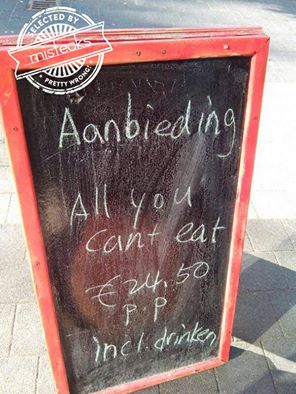 SELECTED BY
misteaks
PRETTY WRONG
Aanbieding
All you
can+ eat
€24.50
P.P
incl. drinken